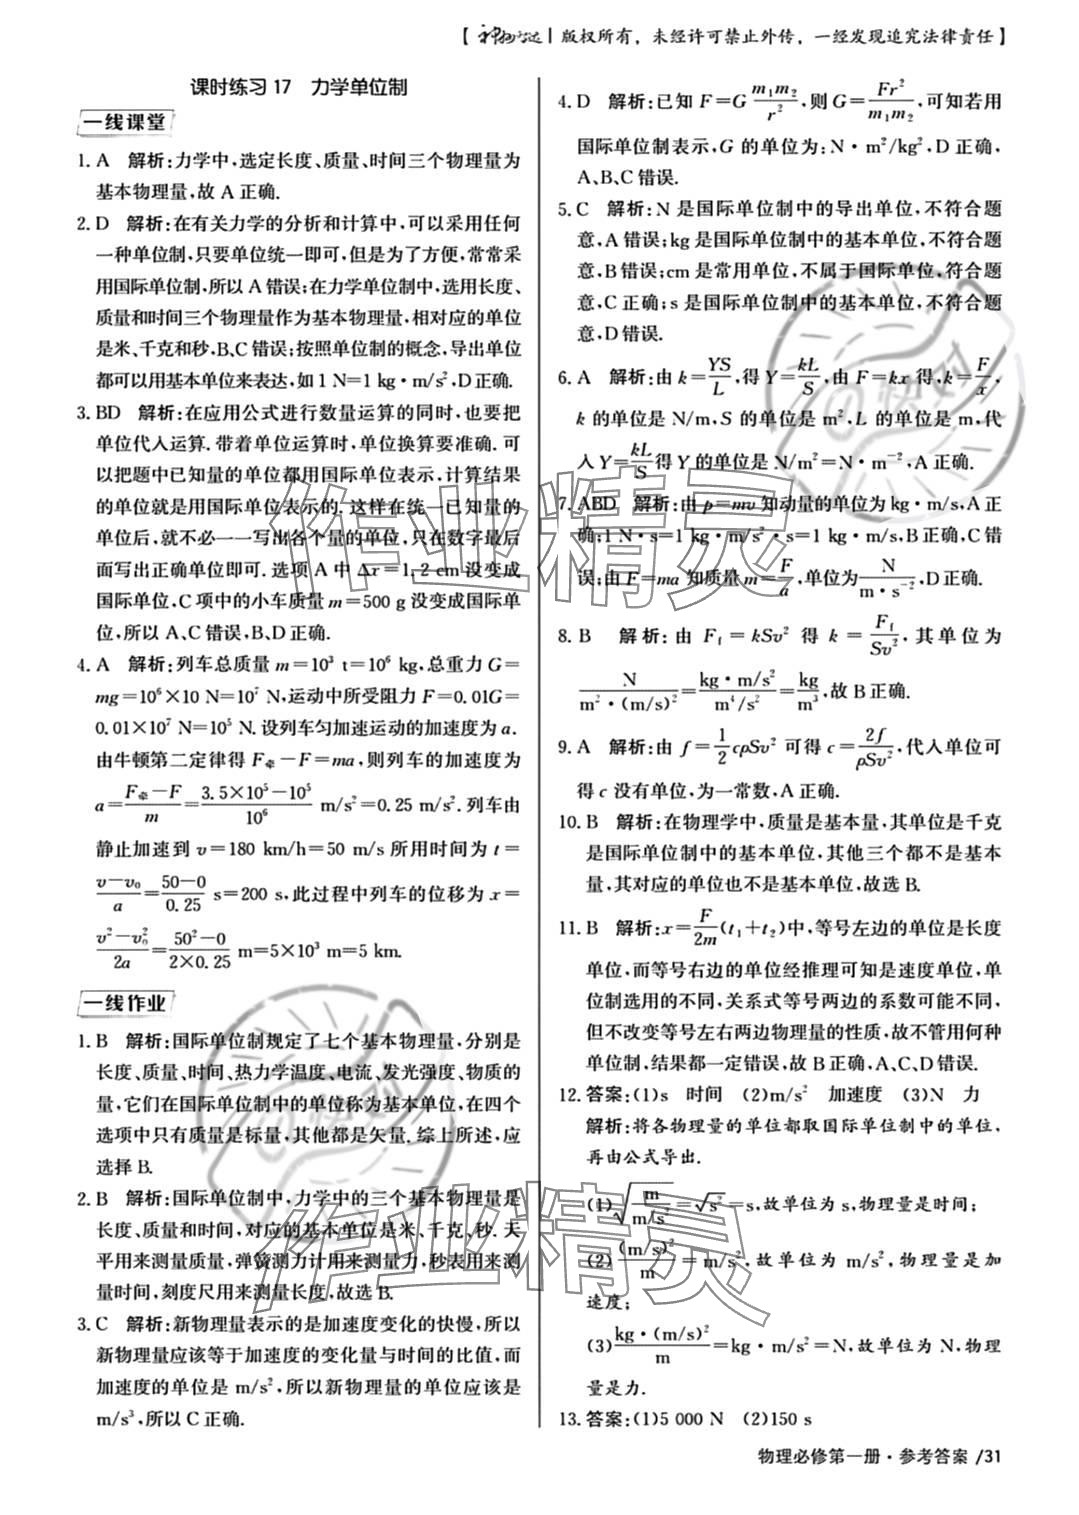 【神州文达｜版权所有，未经许可禁止外传，一经发现追究法律责任】
课时练习17　力学单位制
一线课堂
1. A　解析:力学中,选定长度、质量、时间三个物理量为
基本物理量,故 A 正确.
2. D　解析:在有关力学的分析和计算中,可以采用任何
一种单位制,只要单位统一即可,但是为了方便,常常采
用国际单位制,所以 A 错误;在力学单位制中,选用长度、
质量和时间三个物理量作为基本物理量,相对应的单位
是米、千克和秒,B、C 错误;按照单位制的概念,导出单位
都可以用基本单位来表达,如 1 N=1 kg·m/s²,D 正确.
3. BD　解析:在应用公式进行数量运算的同时,也要把
单位代入运算.带着单位运算时,单位换算要准确.可
以把题中已知量的单位都用国际单位表示,计算结果
的单位就是用国际单位表示的.这样在统一已知量的
单位后,就不必一一写出各个量的单位,只在数字最后
面写出正确单位即可.选项 A 中 Δx=1.2 cm 没变成
国际单位,C 项中的小车质量 m=500 g 没变成国际单
位,所以 A、C 错误,B、D 正确.
4. A　解析:列车总质量 m=10³ t=10⁶ kg,总重力 G=
mg=10⁶×10 N=10⁷ N,运动中所受阻力 F=0.01G=
0.01×10⁷ N=10⁵ N.设列车匀加速运动的加速度为 a.
由牛顿第二定律得 F牵−F=ma,则列车的加速度为
a=(F牵−F)/m=(3.5×10⁵−10⁵)/10⁶ m/s²=0.25 m/s².列车由
静止加速到 v=180 km/h=50 m/s 所用时间为 t=
(v−v₀)/a=(50−0)/0.25 s=200 s,此过程中列车的位移为 x=
(v²−v₀²)/2a=(50²−0)/(2×0.25) m=5×10³ m=5 km.
一线作业
1. B　解析:国际单位制规定了七个基本物理量,分别是
长度、质量、时间、热力学温度、电流、发光强度、物质的
量,它们在国际单位制中的单位称为基本单位,在四个
选项中只有质量是标量,其他都是矢量.综上所述,应
选择 B.
2. B　解析:国际单位制中,力学中的三个基本物理量是
长度、质量和时间,对应的基本单位是米、千克、秒.天
平用来测量质量,弹簧测力计用来测量力,秒表用来测
量时间,刻度尺用来测量长度,故选 B.
3. C　解析:新物理量表示的是加速度变化的快慢,所以
新物理量应该等于加速度的变化量与时间的比值,而
加速度的单位是 m/s²,所以新物理量的单位应该是
m/s³,所以 C 正确.
4. D　解析:已知 F=G m₁m₂/r²,则 G=Fr²/m₁m₂,可知若用
国际单位制表示,G 的单位为:N·m²/kg²,D 正确,
A、B、C 错误.
5. C　解析:N 是国际单位制中的导出单位,不符合题
意,A 错误;kg 是国际单位制中的基本单位,不符合题
意,B 错误;cm 是常用单位,不属于国际单位,符合题
意,C 正确;s 是国际单位制中的基本单位,不符合题
意,D 错误.
6. A　解析:由 k=YS/L,得 Y=kL/S,由 F=kx 得,k=F/x,
k 的单位是 N/m,S 的单位是 m²,L 的单位是 m,代
入 Y=kL/S 得 Y 的单位是 N/m²=N·m⁻²,A 正确.
7. ABD　解析:由 p=mv 知动量的单位为 kg·m/s,A 正
确;1 N·s=1 kg·m/s²·s=1 kg·m/s,B 正确,C 错
误;由 F=ma 知质量 m=F/a,单位为 N/(m·s⁻²),D 正确.
8. B　解析:由 F_f=kSv² 得 k=F_f/Sv²,其单位为
N/(m²·(m/s)²)=(kg·m/s²)/(m⁴/s²)=kg/m³,故 B 正确.
9. A　解析:由 f=1/2 cρSv² 可得 c=2f/ρSv²,代入单位可
得 c 没有单位,为一常数,A 正确.
10. B　解析:在物理学中,质量是基本量,其单位是千克
是国际单位制中的基本单位,其他三个都不是基本
量,其对应的单位也不是基本单位,故选 B.
11. B　解析:x=F/2m(t₁+t₂)中,等号左边的单位是长度
单位,而等号右边的单位经推理可知是速度单位,单
位制选用的不同,关系式等号两边的系数可能不同,
但不改变等号左右两边物理量的性质,故不管用何种
单位制,结果都一定错误,故 B 正确,A、C、D 错误.
12. 答案:(1)s　时间　(2)m/s²　加速度　(3)N　力
解析:将各物理量的单位都取国际单位制中的单位,
再由公式导出.
(1)√(m/(m/s²))=√s²=s,故单位为 s,物理量是时间;
(2)(m/s)²/m=m/s²,故单位为 m/s²,物理量是加
速度;
(3)kg·(m/s)²/m=kg·m/s²=N,故单位为 N,物理
量是力.
13. 答案:(1)5 000 N　(2)150 s
物理必修第一册·参考答案 /31
作业精灵
作业精灵